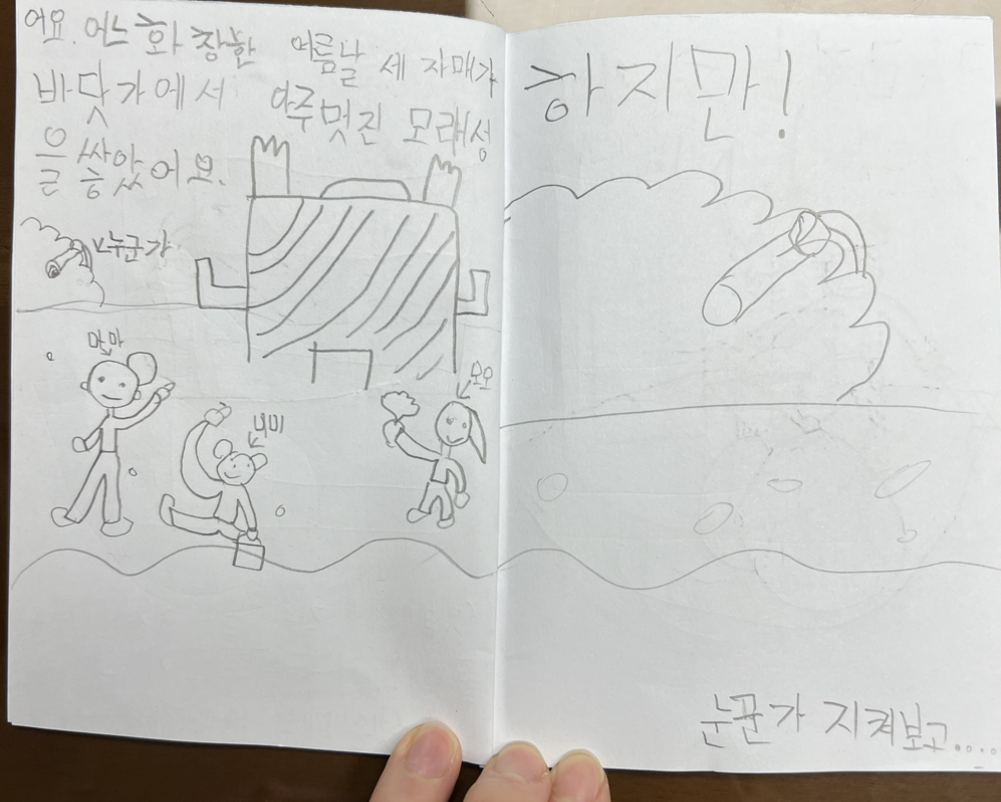 어요. 어느 화창한 여름날 세 자매가
바닷가에서 아주 멋진 모래성
을 쌓았어요.
누군가
마마
미미
모모
하지만!
눈군가 지켜보고....